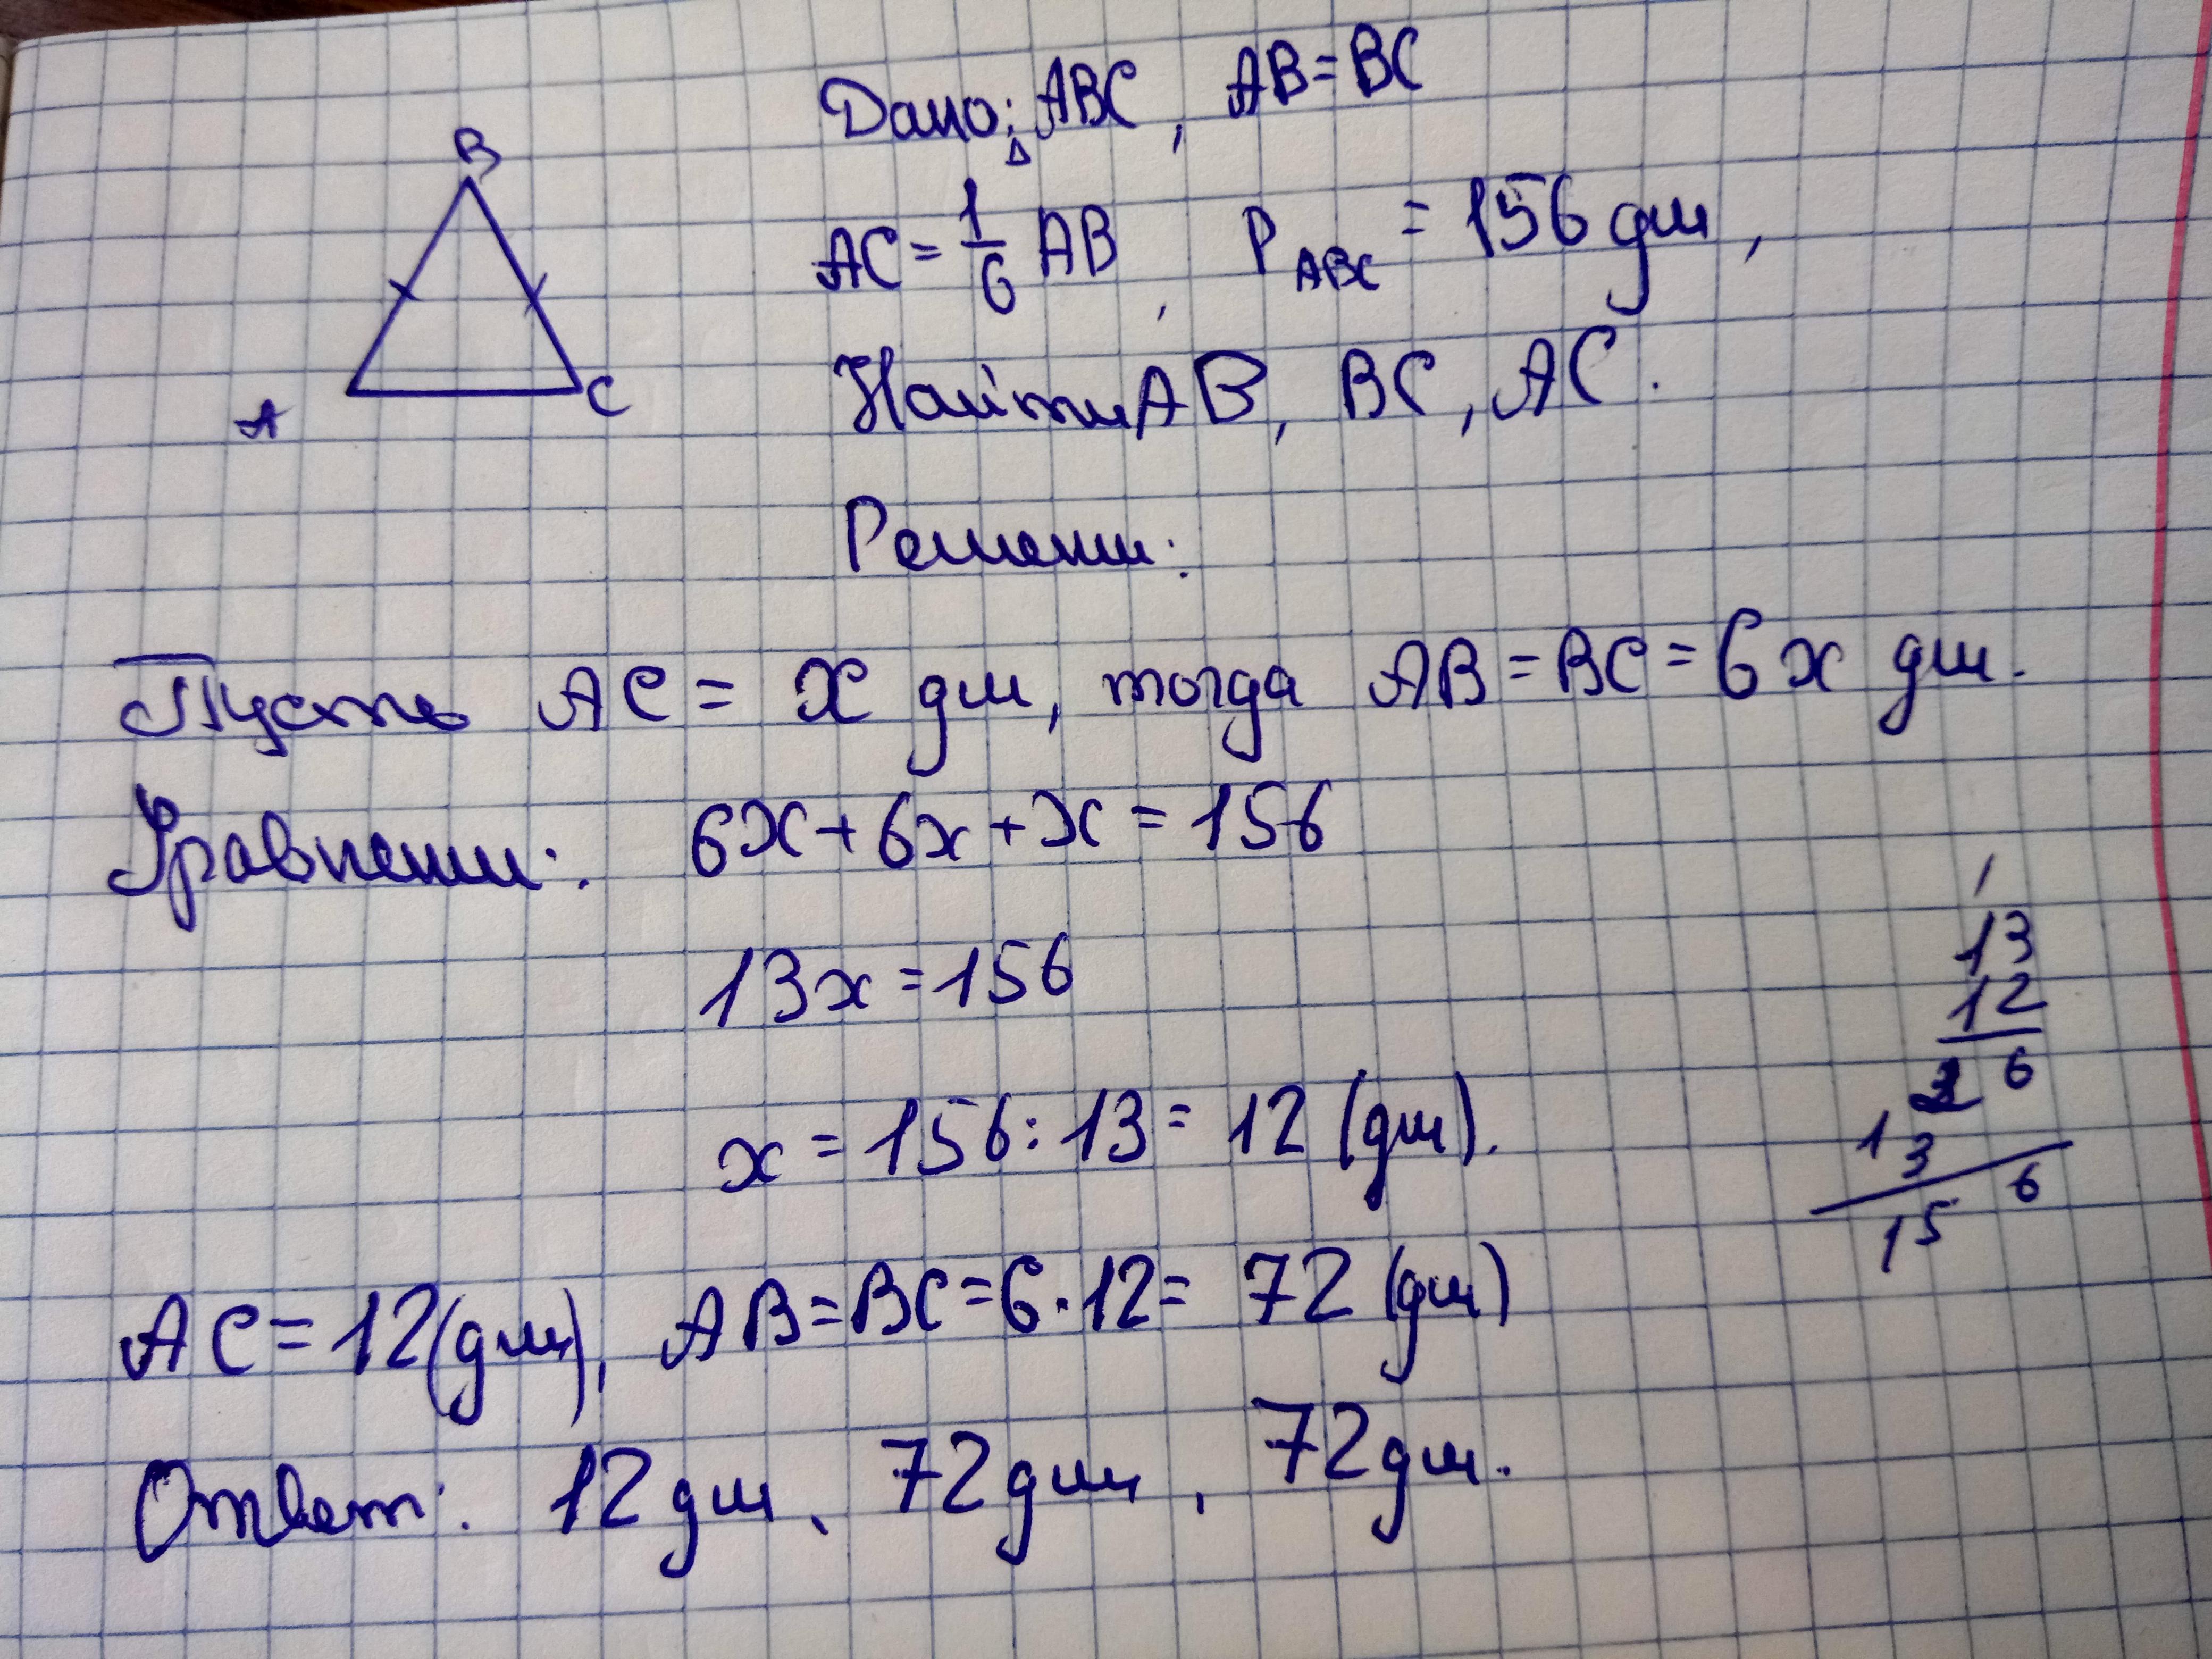 B
A
C
Дано: ΔABC, AB=BC
AC=1/6 AB, P ABC = 156 дм,
Найти AB, BC, AC.
Решени:
Пусть AC = x дм, тогда AB=BC=6x дм.
Уравнени: 6x+6x+x=156
13x=156
x=156:13=12 (дм).
1
13
12
26
13
156
AC=12(дм), AB=BC=6·12=72(дм)
Ответ: 12дм, 72дм, 72дм.